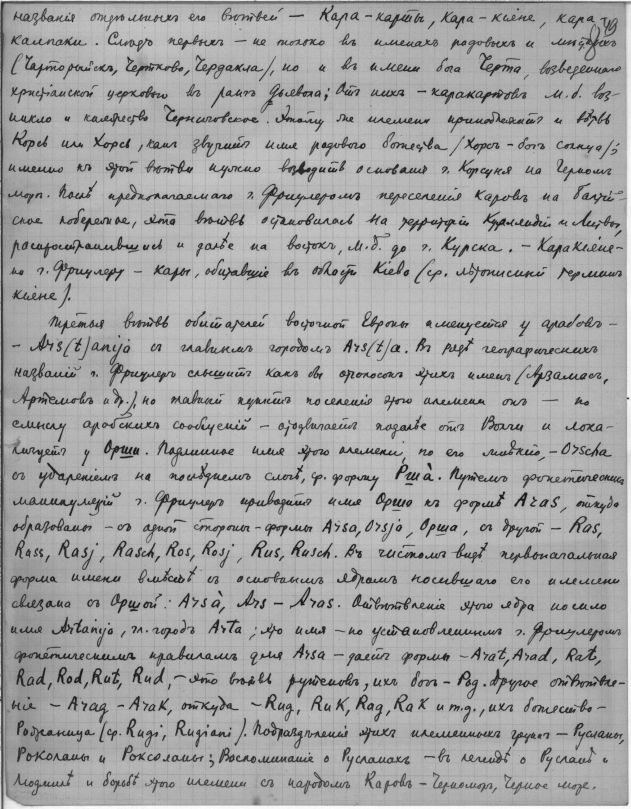 названия отдѣльныхъ его вѣтвей — Кара-карты, Кара-кіяне, кара-
калпаки. Слѣдъ первыхъ — не только въ именахъ родовыхъ и мѣстныхъ
(Черторыйскъ, Чертково, Чердакла), но и въ имени бога Черта, возведеннаго
христіанской церковью въ рангъ дьявола; Отъ нихъ - каракартовъ м.б. воз-
никло и княжество Черниговское. Этому же племени принадлежитъ и вѣтвь
Корсь или Хорсъ, какъ звучитъ имя родового божества (Хорсъ-богъ солнца);
именно къ этой вѣтви нужно возводить основанія г. Корсуня на Черномъ
морѣ. Послѣ предполагаемаго г. Фрицлеромъ переселенія Каровъ на Балтій-
ское побережье, эта вѣтвь остановилась на территоріи Курляндіи и Литвы,
распространившись и далѣе на востокъ, м.б. до г. Курска. - Каракіяне-
по г. Фрицлеру - кары, обитавшіе въ области Кіева (ср. лѣтописный терминъ
кіяне).
Третья вѣтвь обитателей восточной Европы именуется у арабовъ -
- Ars(t)anija съ главнымъ городомъ Ars(t)a. Въ рядѣ географическихъ
названій г. Фрицлеръ слышитъ какъ бы отголосокъ этихъ именъ (Арзамасъ,
Артемовъ и др.), но главный пунктъ поселенія этого племени онъ — по
смыслу арабскихъ сообщеній - отодвигаетъ подалѣе отъ Волги и лока-
лизуетъ у Орши. Подлинное имя этого племени, по его мнѣнію, - Orscha
съ удареніемъ на послѣднемъ слогѣ, ср. форму Ршà. Путемъ фонетическихъ
манипуляцій г. Фрицлеръ приводитъ имя Орша къ формѣ Aras, откуда
образованы - съ одной стороны - формы Arsa, Orsja, Орша, съ другой — Ras,
Rass, Rasj, Rasch, Ros, Rosj, Rus, Rusch. Въ чистомъ видѣ первоначальная
форма имени вмѣстѣ съ основнымъ ядромъ носившаго его племени
связана съ Оршой: Arsà, Ars - Aras. Отвѣтвленіе этого ядра носило
имя Artanija, гл. городъ Arta; это имя - по установленнымъ г. Фрицлеромъ
фонетическимъ правиламъ для Arsa - даетъ формы - Arat, Arad, Rat,
Rad, Rod, Rut, Rud, - это вѣтвь рутеновъ, ихъ богъ - Род. Другое отвѣтвле-
ніе - Arag - Arak, откуда - Rug, Ruk, Rag, Rak и т.д., ихъ божество-
Рожаница (ср. Rugi, Rugiani). Подраздѣленія этихъ племенныхъ группъ - Русланы,
Роколаны и Роксоланы; Воспоминаніе о Русланахъ - въ легендѣ о Русланѣ и
Людмилѣ и борьбѣ этого племени съ народомъ Каровъ - Черноморъ, Черное море.